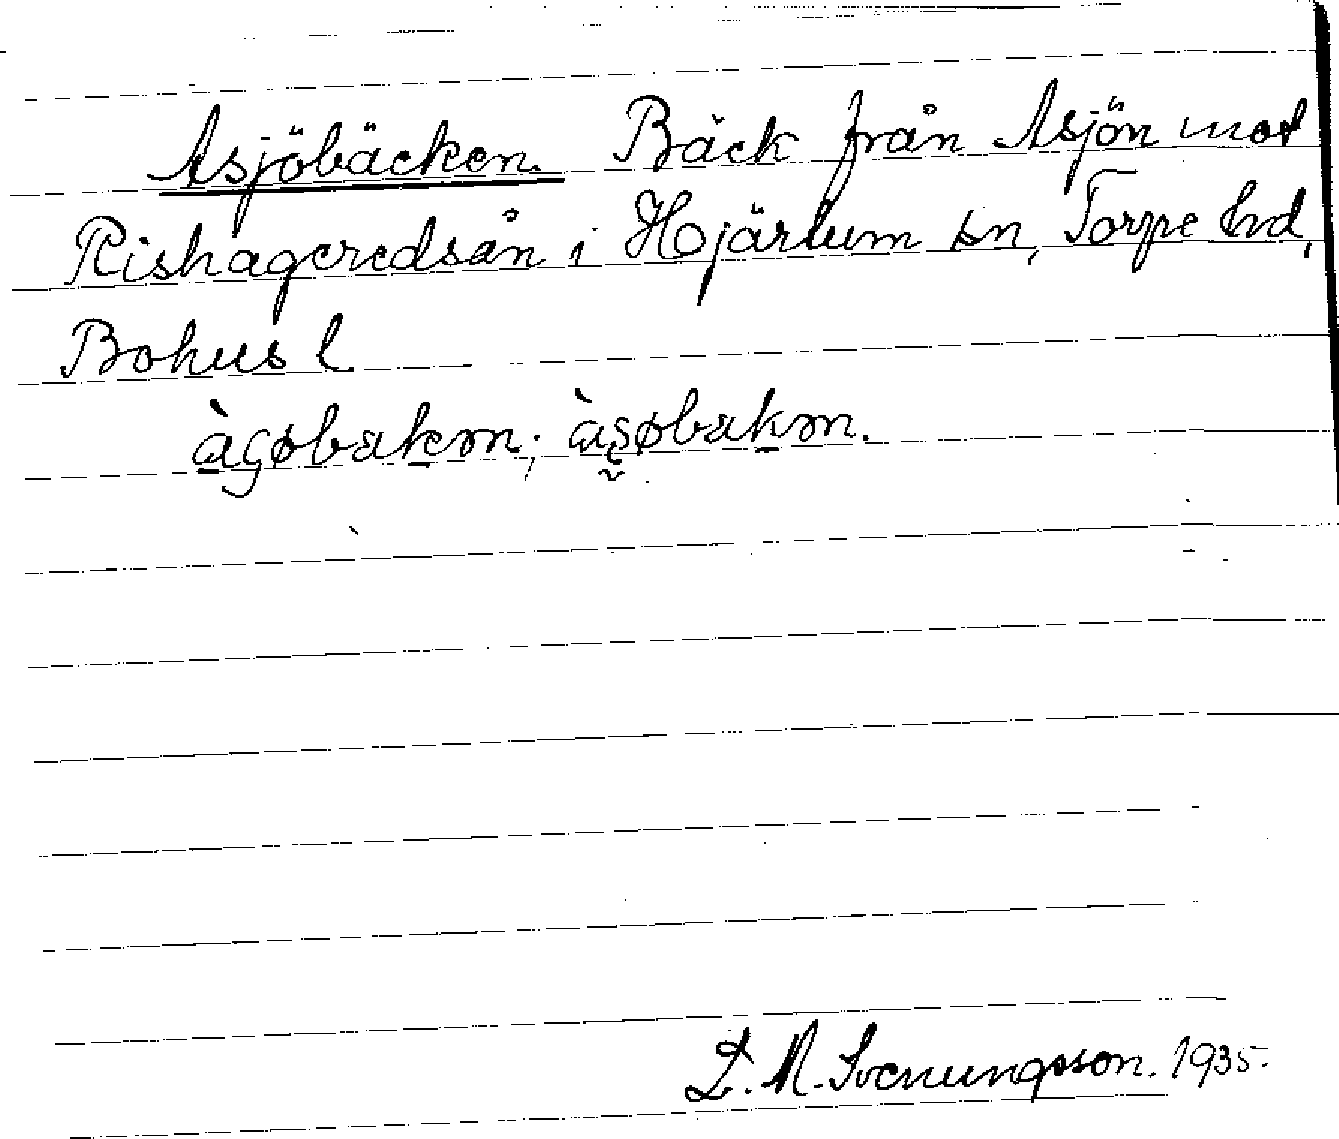 Asjöbäcken. Bäck från Asjön mot
Rishageredsån i Hjärtum sn, Torpe hd,
Bohus l
àçøbakən; àşøbakən.
L. M. Svenungsson. 1935.